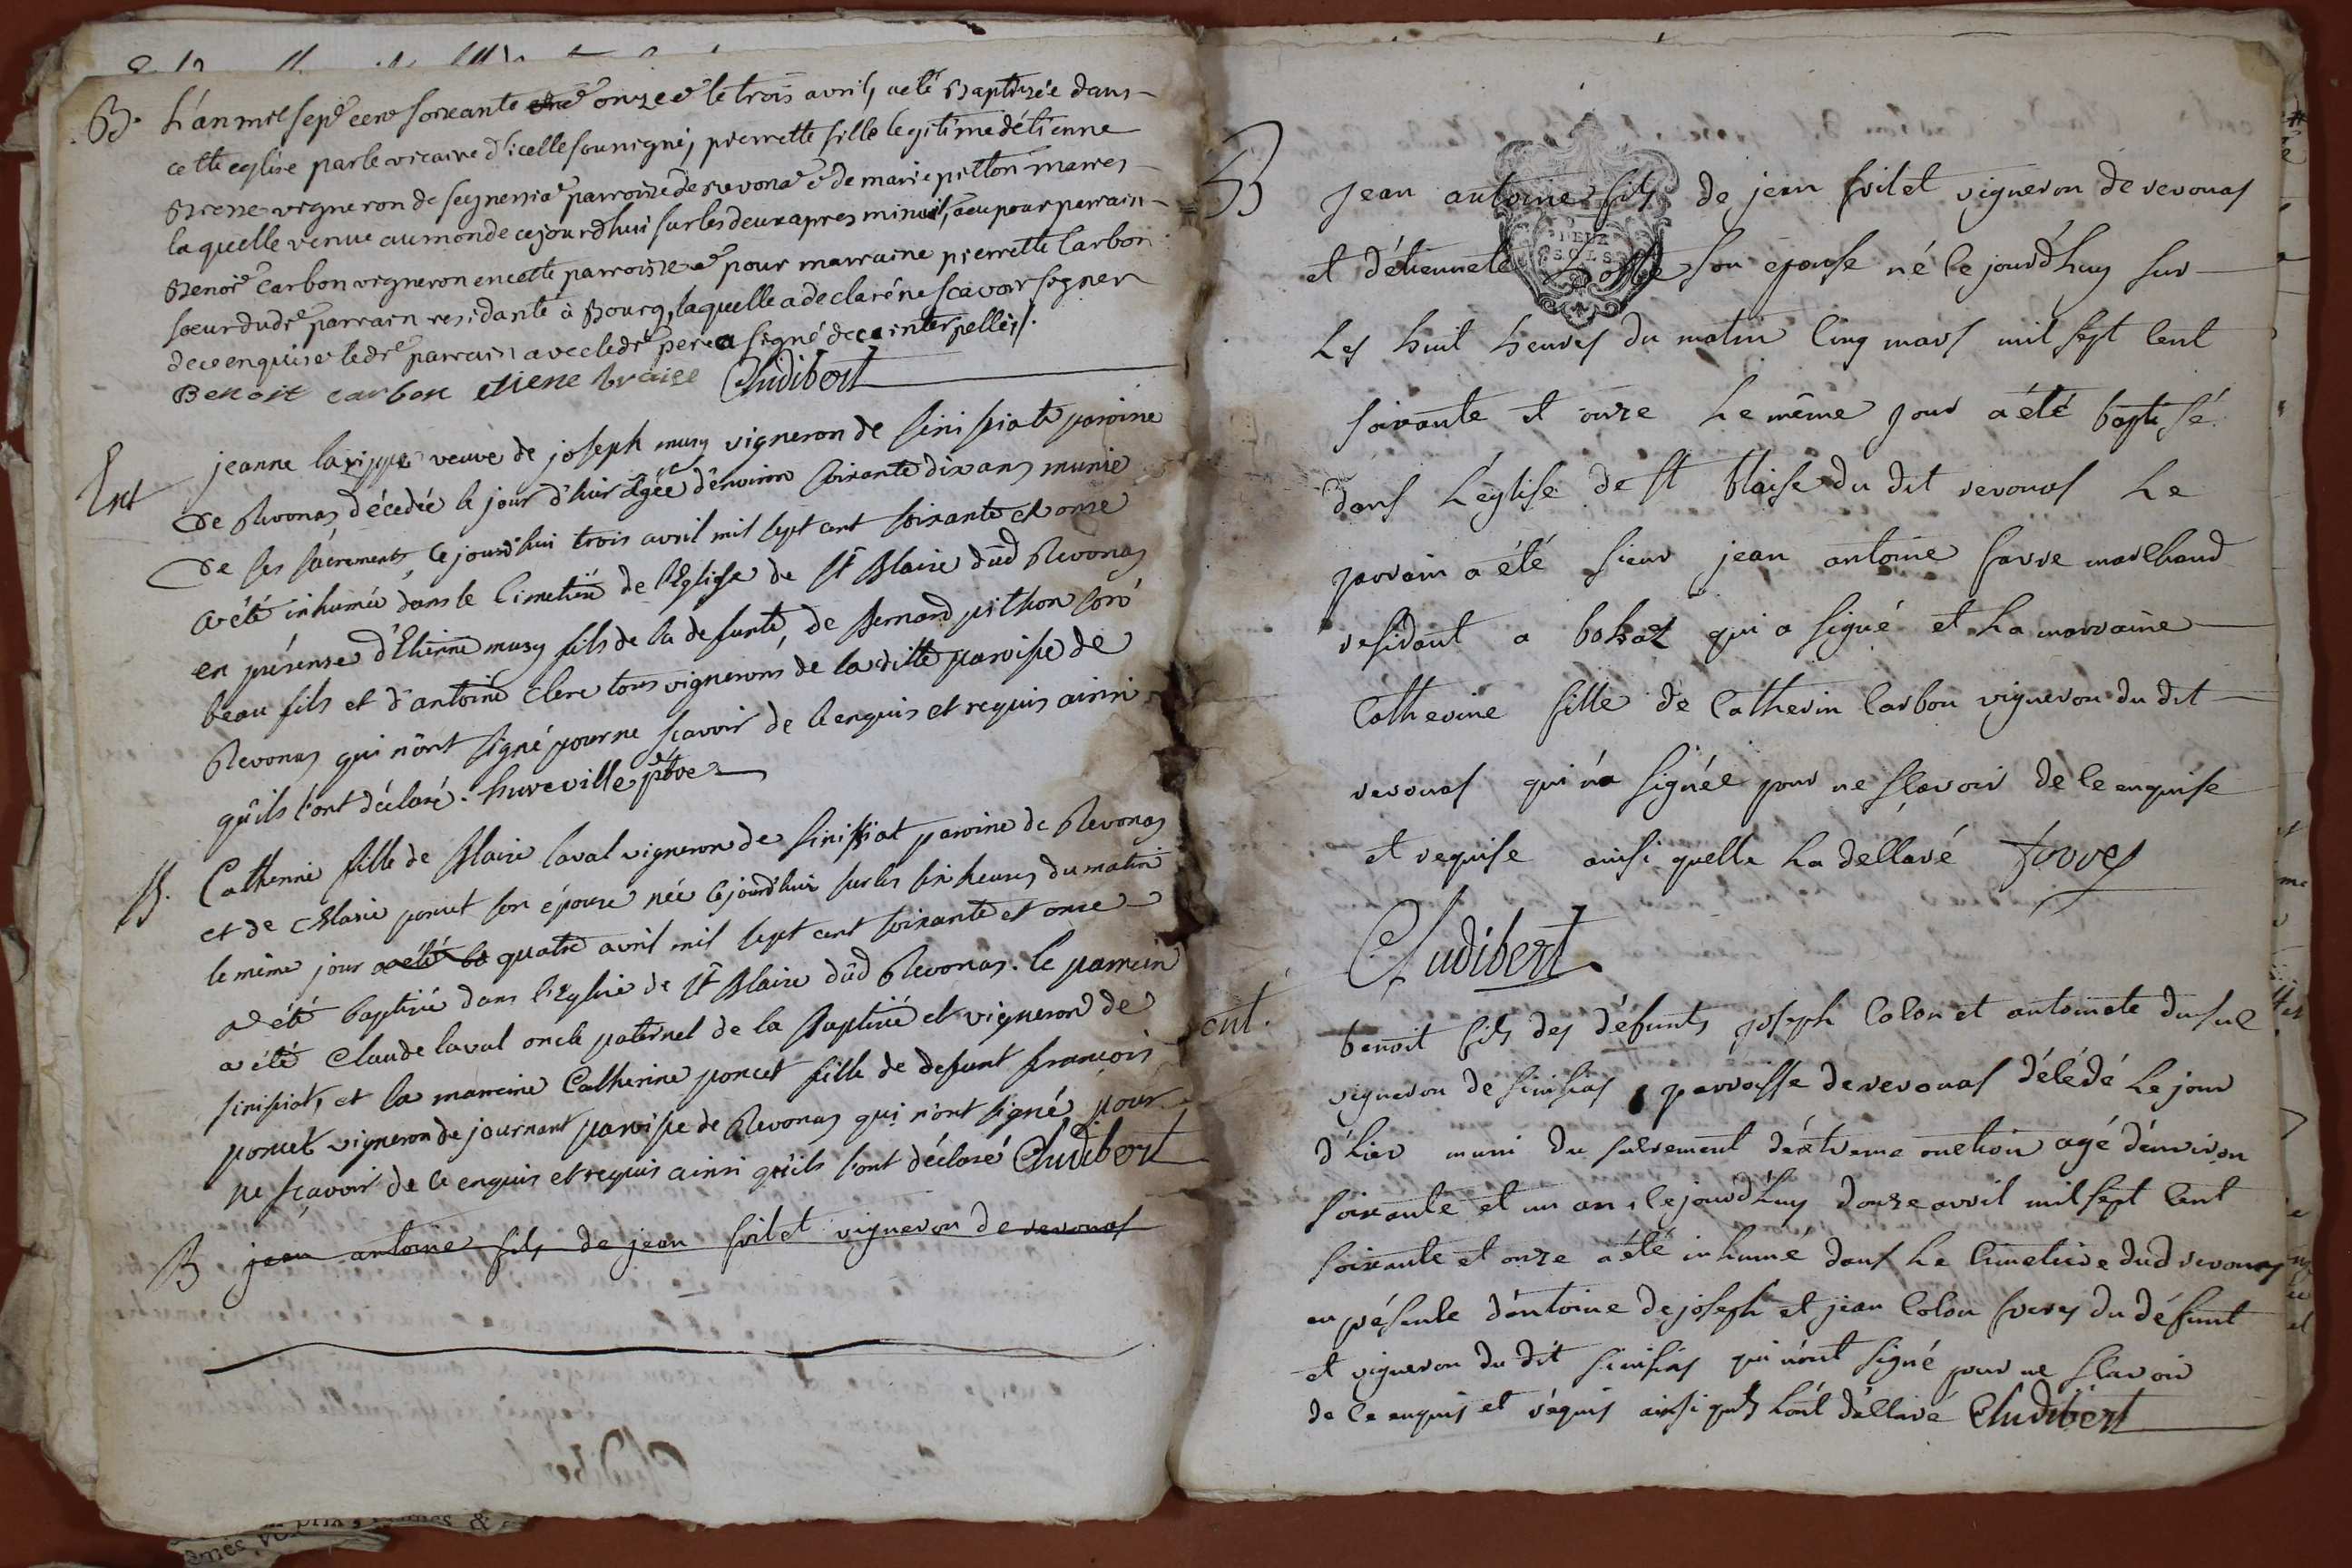 B. L'an mil sept cent soixante onze et le trois avril, a eté Baptisée dans
cette eglise par le vicaire d'icelle sousigné, pierrette fille legitime d'étienne
Brese vigneron de seynessia parroisse de revona et de marie pitton mariés
laquelle venue au monde cejourdhui sur les deux apres minuit, a eu pour parrain
Benoit Carbon vigneron en cette parroisse et pour marraine pierrette Carbon
soeur dudt parrain residante à Bourg, laquelle a declaré ne scavoir signer
de ce enquise ledt parrain avec ledt pere a signé de ce interpellés.
Benoit carbon etiene braize Chudibert
Ent jeanne larippe veuve de joseph musy vigneron de sinissiat paroisse
de Revonas décedée le jour d'hier agée d'environ soixante dix ans munie
de ses sacrements, ce jourd'hui trois avril mil sept cent soixante et onze
a été inhumée dans le Cimetière de l'Eglise de St Blaise dud Revonas
en présense d'Etienne musy fils de la defunte, de Bernard pithon son
beau fils et d'antoine Clerc tous vignerons de la ditte paroisse de
Revonas qui n'ont signé pour ne sçavoir de ce enquis et requis ainsi
qu'ils l'ont déclaré. hureville ptre
B. Catherine fille de Blaise laval vigneron de sinissiat paroisse de Revonas
et de Marie poncet son épouse née cejourd'hui sur les six heures du matin
le même jour a été ba quatre avril mil sept cent soixante et onze
a été baptisée dans l'Eglise de St Blaise dud Revonas. le parrein
a été Claude laval oncle paternel de la Baptisée et vigneron de
sinissiat, et la marreine Catherine poncet fille de defunt françois
poncet vigneron de journant paroisse de Revonas qui n'ont signé pour
ne sçavoir de ce enquis et requis ainsi qu'ils l'ont déclaré Chudibert
B jean antoine fils de jean foilet vigneron de revonas
B jean antoine fils de jean foilet vigneron de revonas
DEUX
SOLS
et d'étiennete son épouse né ce jourd'huy sur
les huit heures du matin cinq mars mil sept cent
soixante et onze le même jour a été baptisé
dans l'église de st blaise du dit revonas le
parrain a été sieur jean antoine favre marchand
residant a bohaz qui a signé et la marraine
Catherine fille de Catherin Carbon vigneron du dit
revonas qui n'a signée pour ne sçavoir de ce enquise
et requise ainsi quelle la déclaré favre
Chudibert
ent. benoit fils des défunts joseph Colon et antoinete
vigneron de sinisias parroisse de revonas décédé le jour
d'hier muni du sacrement déxtreme onction agé d'environ
soixante et un an, ce jourd'huy douze avril mil sept cent
soixante et onze a été inhumé dans le cimetiere dud revonas
en présence d'antoine de joseph et jean Colon freres du défunt
et vigneron du dit sinisias qui n'ont signé pour ne sçavoir
de ce enquis et réquis ainsi quils l'ont déclaré Chudibert